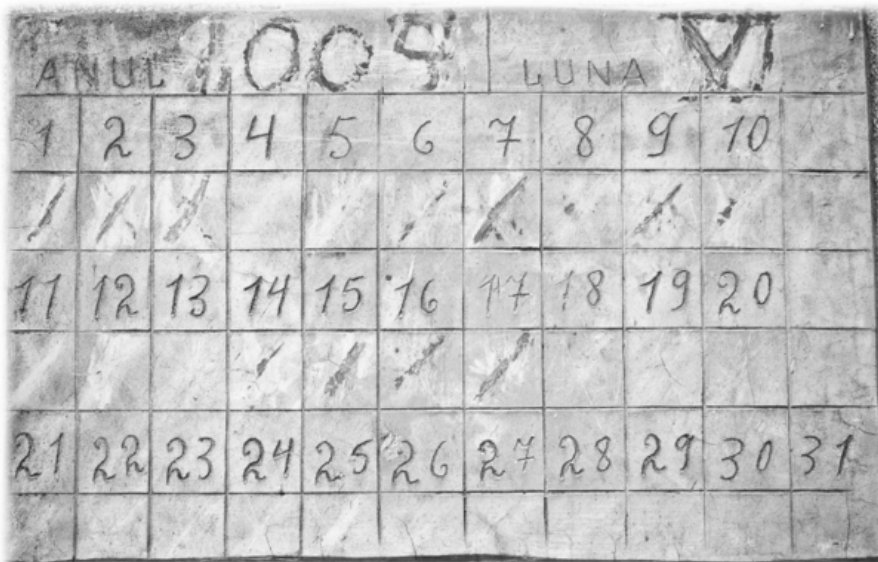 ANUL 2009 LUNA VI
1 2 3 4 5 6 7 8 9 10
11 12 13 14 15 16 17 18 19 20
21 22 23 24 25 26 27 28 29 30 31